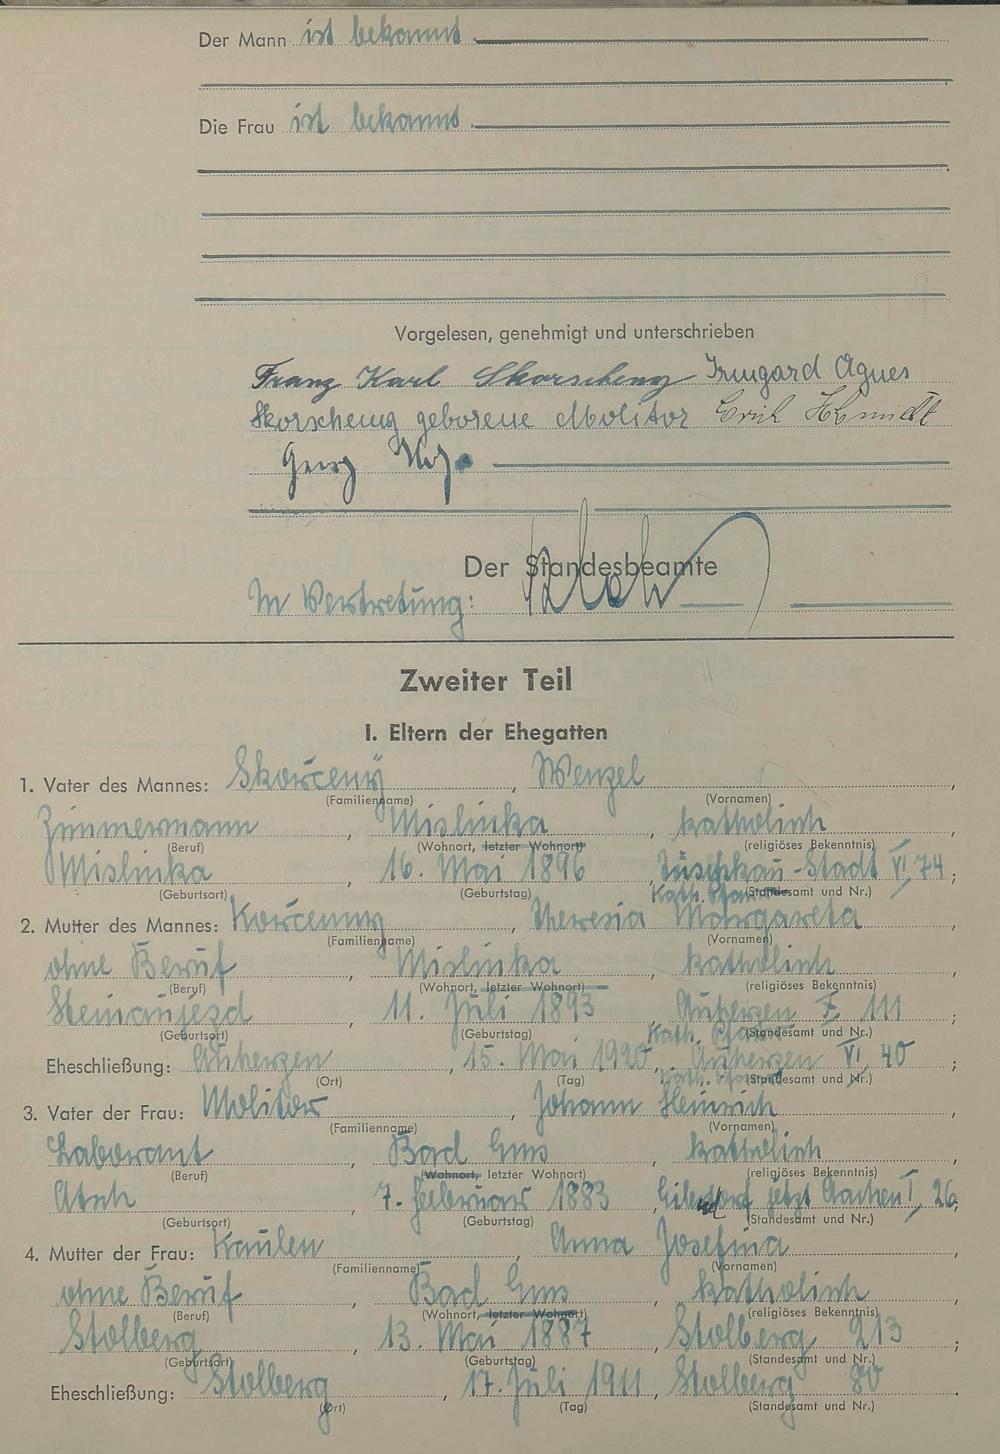 Der Mann ist bekannt
Die Frau ist bekannt
Vorgelesen, genehmigt und unterschrieben
Franz Karl Skorscheny Irmgard Agnes
Skorscheny geborene Molitor Erich Schmidt
Georg
Der Standesbeamte
In Vertretung:
Zweiter Teil
I. Eltern der Ehegatten
1. Vater des Mannes: Skorčený, Wenzel,
(Familienname) (Vornamen)
Zimmermann, Mislinka, katholisch
(Beruf) (Wohnort, letzter Wohnort) (religiöses Bekenntnis)
Mislinka, 16. Mai 1896, Tuschkau-Stadt VI, 74;
(Geburtsort) (Geburtstag) Kath. Pfarramt (Standesamt und Nr.)
2. Mutter des Mannes: Korčenny, Theresia Margareta,
(Familienname) (Vornamen)
ohne Beruf, Mislinka, katholisch
(Beruf) (Wohnort, letzter Wohnort) (religiöses Bekenntnis)
Steinaujezd, 11. Juli 1893, Auherzen 111;
(Geburtsort) (Geburtstag) Kath. Pfarramt (Standesamt und Nr.)
Eheschließung: Auherzen, 15. Mai 1920, Auherzen VI, 40;
(Ort) (Tag) Kath. Pfarramt (Standesamt und Nr.)
3. Vater der Frau: Molitor, Johann Heinrich,
(Familienname) (Vornamen)
Laborant, Bad Ems, katholisch
(Beruf) (Wohnort, letzter Wohnort) (religiöses Bekenntnis)
Atsch, 7. Februar 1883, Eilendorf jetzt Aachen I, 26;
(Geburtsort) (Geburtstag) (Standesamt und Nr.)
4. Mutter der Frau: Kaulen, Anna Josefina,
(Familienname) (Vornamen)
ohne Beruf, Bad Ems, katholisch
(Beruf) (Wohnort, letzter Wohnort) (religiöses Bekenntnis)
Stolberg, 13. Mai 1887, Stolberg 213;
(Geburtsort) (Geburtstag) (Standesamt und Nr.)
Eheschließung: Stolberg, 17. Juli 1911, Stolberg 80.
(Ort) (Tag) (Standesamt und Nr.)